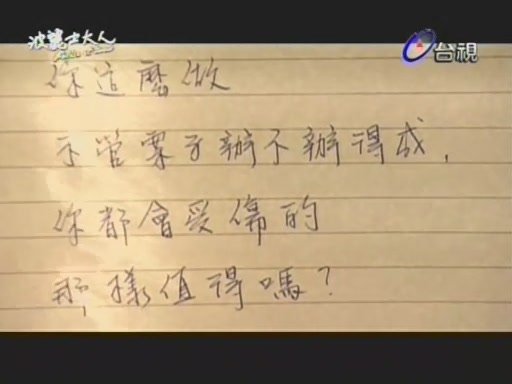 波麗士大人
台視
你這麼做
不管案子辦不辦得成,
你都會受傷的
那樣值得嗎?